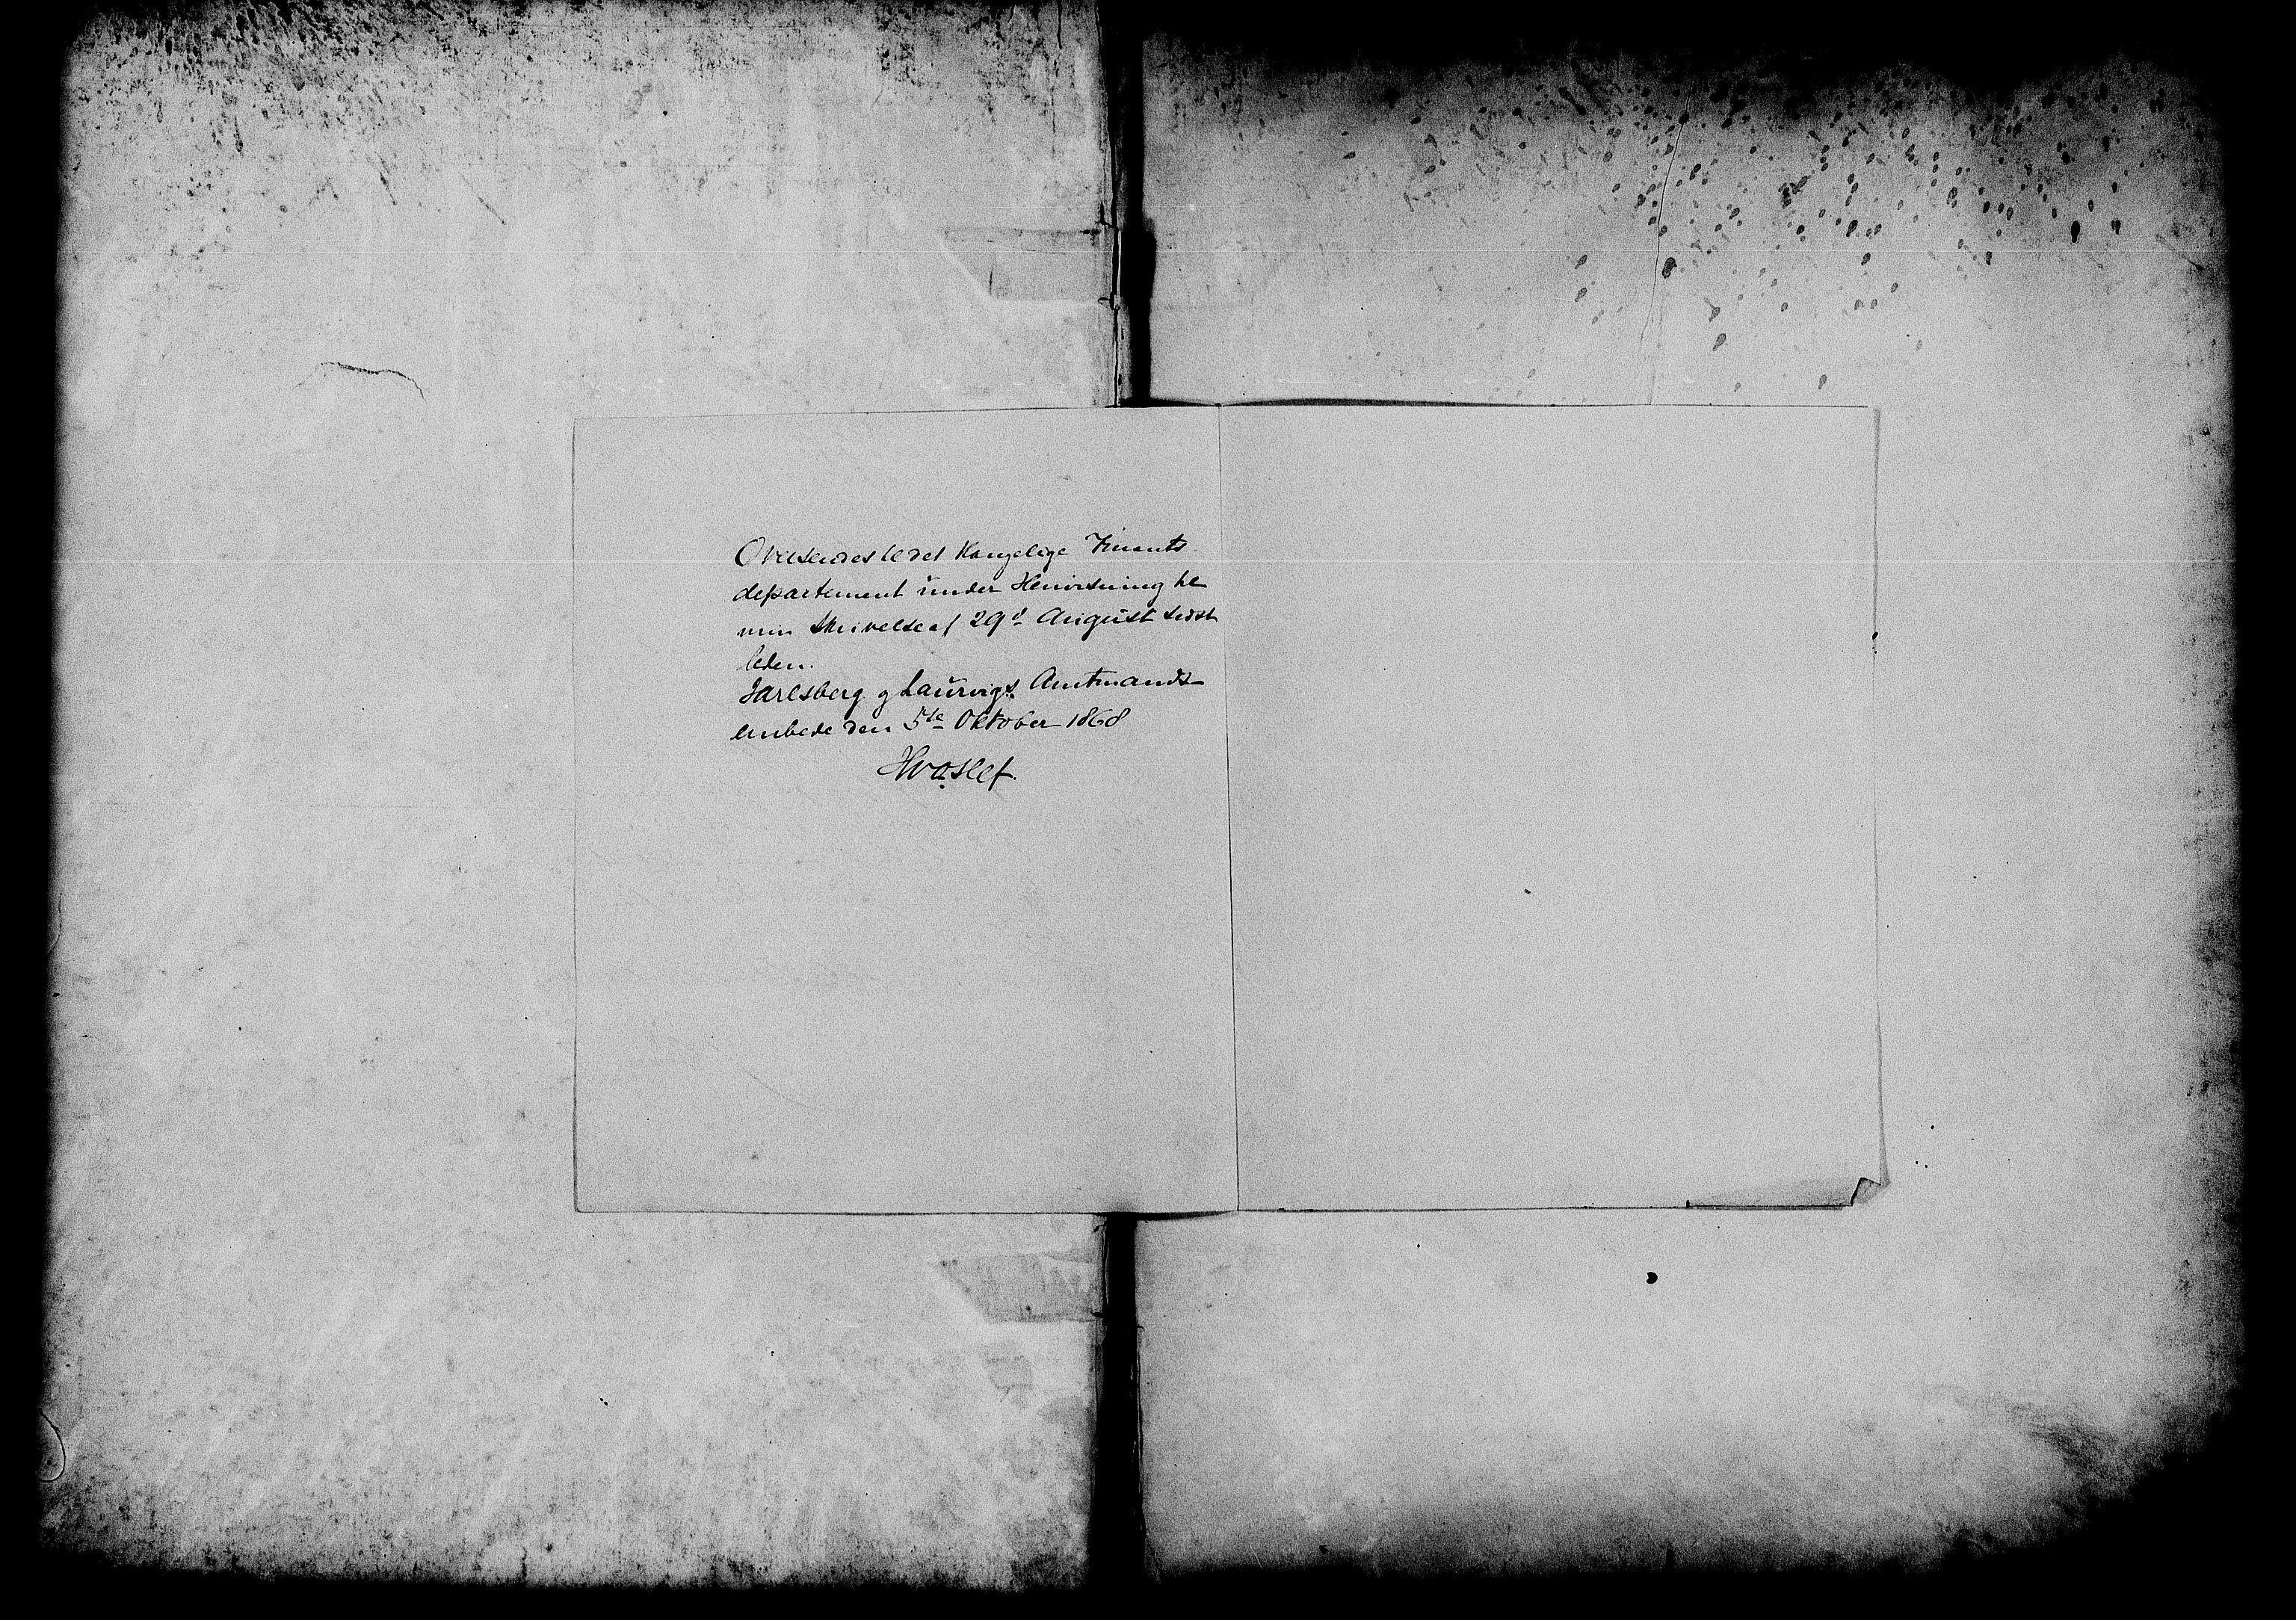 Oversendes til det Kongelige Finants
departement under Henvisning til
min Skrivelse af 29d August sidst
leden.
Jarlsberg og Laurvigs Amtmands-
embede den 5te Oktober 1868
Hvoslef.